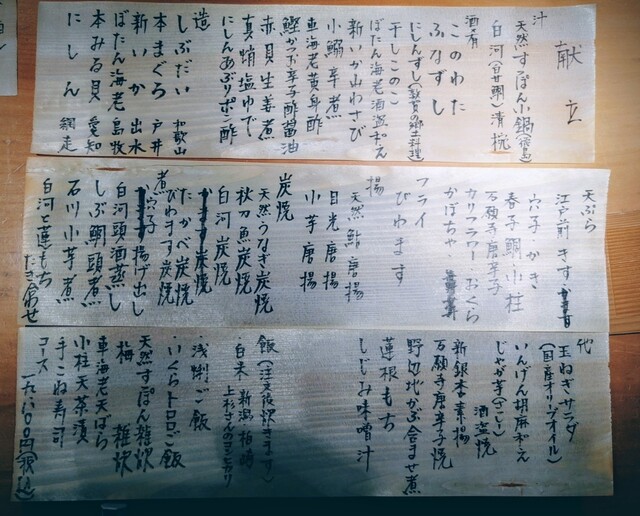 献立
汁
天然すっぽん小鍋
白河(白甘鯛)清椀
酒肴
このわた
ふなずし
にしんずし(敦賀の郷土料理)
干しこのこ
ぼたん海老酒盗ポン
新いか山わさび
小鰯辛煮
車海老黄身酢
鰹かつお辛子酢醤油
赤貝生姜煮
真蛸塩ゆで
にしんあぶりポン酢
造
しぶだい 和歌山
本まぐろ 戸井
新いか 出水
ぼたん海老 島牧
本みる貝 愛知
にしん 網走
天ぷら
江戸前きす
穴子・かき
春子鯛・小柱
万願寺唐辛子
カリフラワー・おくら
かぼちゃ
フライ
びわます
揚
天然鮎唐揚
目光唐揚
小芋唐揚
炭焼
天然うなぎ炭焼
秋刀魚炭焼
白河炭焼
たかべ炭焼
びわます炭焼
煮
穴子 揚げ出し
白河頭酒蒸し
しぶ鯛頭煮
石川小芋煮
白河と蓮もち
たき合せ
他
玉ねぎサラダ
(国産オリーブオイル)
いんげん胡麻あえ
じゃが芋(さとし)
酒盗焼
新銀杏素揚
万願寺唐辛子焼
野辺地かぶ含ませ煮
蓮根もち
しじみ味噌汁
飯(注文後炊きます)
白米 新潟柏崎
上杉さんのコシヒカリ
浅蜊ご飯
いくらトロロご飯
天然すっぽん雑炊
梅 雑炊
車海老天ばら
小柱天茶漬
手こね寿司
コース 一九、八〇〇円(税込)